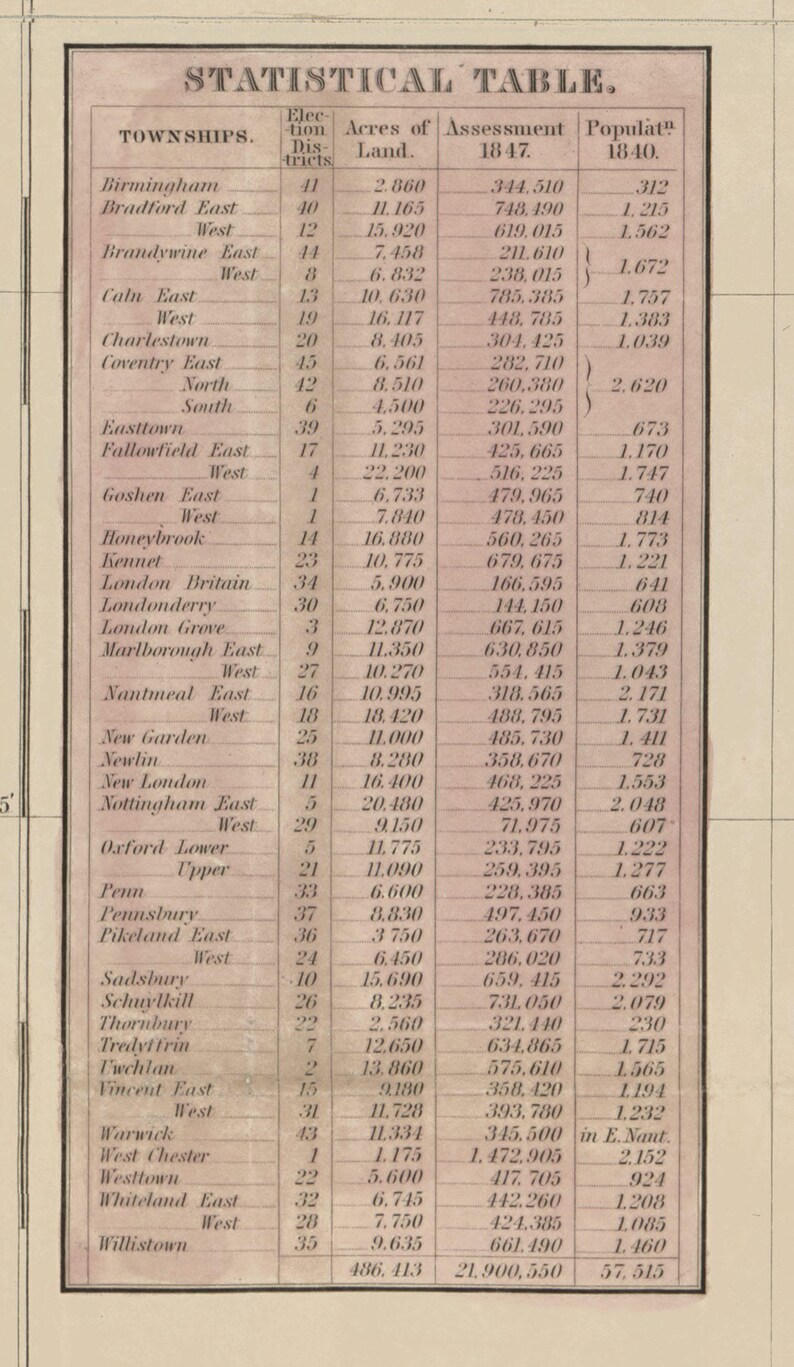 STATISTICAL TABLE.
TOWNSHIPS. Elec-tion Dis-tricts. Acres of Land. Assessment 1847. Populatn. 1840.
Birmingham 41 2.860 344,510 312
Bradford East 40 11.165 748,490 1,215
West 12 15.920 619,015 1.562
Brandywine East 44 7,458 211,610
West 8 6.832 238,015 } 1.672
Caln East 13 10,630 785,385 1,757
West 19 16,117 448,785 1,383
Charlestown 20 8,405 304,425 1.039
Coventry East 45 6,561 282,710
North 42 8.510 260,380 } 2,620
South 6 4,500 226,295
Easttown 39 5.295 301,590 673
Fallowfield East 17 11,230 425,665 1,170
West 4 22.200 516,225 1.747
Goshen East 1 6,733 479,965 740
West 1 7.840 478,450 814
Honeybrook 14 16,880 560,265 1,773
Kennet 23 10,775 679,675 1,221
London Britain 34 5,900 166,595 641
Londonderry 30 6,750 144,150 608
London Grove 3 12,870 667,615 1,246
Marlborough East 9 11,350 630,850 1,379
West 27 10.270 554,415 1.043
Nantmeal East 16 10,995 318,565 2,171
West 18 18,420 488,795 1,731
New Garden 25 11,000 485,730 1,411
Newlin 38 8,280 358,670 728
New London 11 16,400 468,225 1.553
Nottingham East 5 20,480 425,970 2,048
West 29 9.150 71,975 607
Oxford Lower 5 11,775 233,795 1.222
Upper 21 11,090 259,395 1,277
Penn 33 6.600 228,385 663
Pennsbury 37 8,830 497,450 933
Pikeland East 36 3 750 263,670 717
West 24 6,450 286,020 733
Sadsbury 10 15,690 659,415 2.292
Schuylkill 26 8,235 731,050 2,079
Thornbury 22 2,560 321,140 230
Tredyffrin 7 12,650 634,865 1,715
Uwchlan 2 13,860 575,610 1,565
Vincent East 15 9,180 358,420 1,194
West 31 11,728 393,780 1,232
Warwick 43 11,334 345,500 in E.Nant.
West Chester 1 1.175 1,472,905 2,152
Westtown 22 5,600 417,705 924
Whiteland East 32 6,745 442,260 1,208
West 28 7,750 424,385 1,085
Willistown 35 9,635 661,490 1,460
486,413 21,900,550 57,515
5'